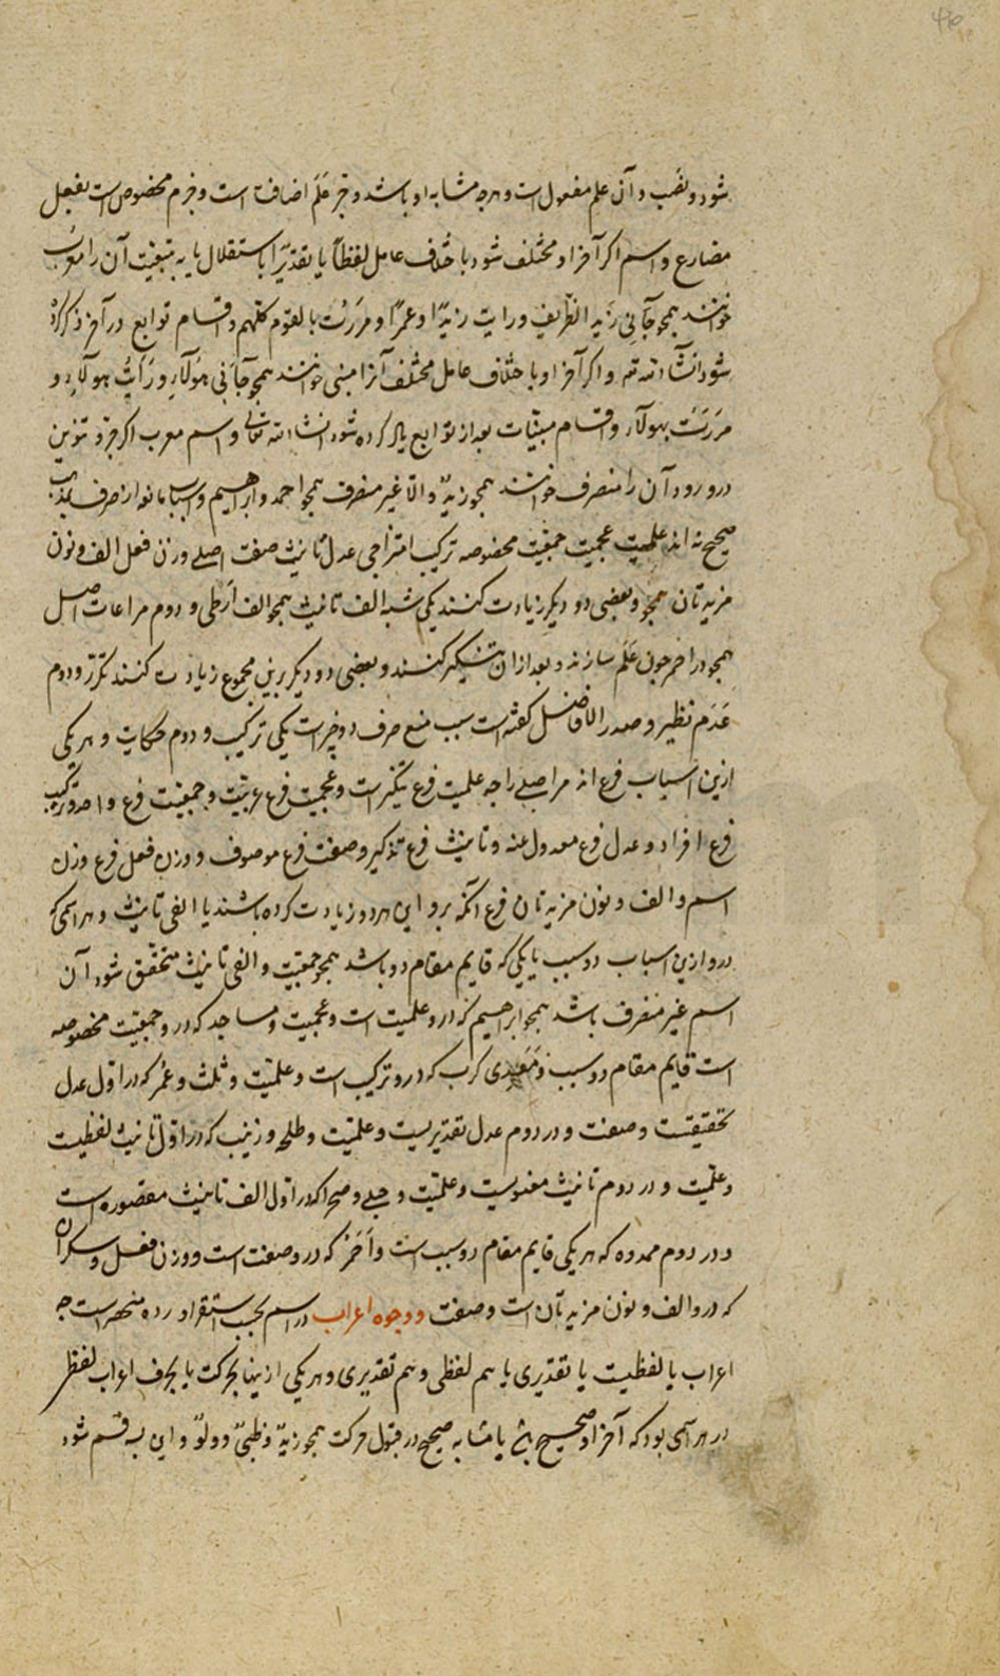 شود و نصب و آن علم مفعولست و هرچه مشابه او باشد و جر علم اضافت است و جزم مخصوص است بفعل
مضارع و اسم اکر آخر او مختلف شود باختلاف عامل لفظاً یا تقدیراً باستقلال یا به تبعیت آن را معرب
خوانند همجو جآنی زید الظریف و رایت زیدًا و عمرًا و مررت بالقوم کلهم و اقسام توابع در آخر ذکر کرده
شود انشآء الله و اکر آخر او باختلاف عامل مختلف آنرا مبنی خوانند همجو جآنی هولآء و رایت هولآء و
مررت بهولآء و اقسام مبنیات بعد از توابع یاد کرده شود انشاء الله تعالی و اسم معرب اکر جر و تنوین
درو رود آن را منصرف خوانند همجو زید و الا غیر منصرف همجو احمد و ابراهیم و اسباب مانعه از صرف بمذهب
صحیح نه اند علمیت عجمیت جمعیت مخصوصه ترکیب امتزاجی عدل تانیث صفت اصلی وزن فعل الف و نون
مزیدتان همجو و بعضی دو دیکر زیادت کنند یکی شبه الف تانیث همجو الف ارطی و دوم مراعات اصل
همجو در احمر چون علم سازند و بعد ازان تنکیر کنند و بعضی دو دیکر برین مجموع زیادت کنند تکرر و دوم
عدم نظیر و صدر الافاضل کفته است سبب منع صرف دو چیز است یکی ترکیب و دوم حکایت و هر یکی
ازین اسباب فرع اند مر اصلی را چه علمیت فرع تنکیر است و عجمیت فرع عربیت و جمعیت فرع واحد و ترکیب
فرع افراد و عدل فرع معدول عنه و تانیث فرع تذکیر و صفت فرع موصوف و وزن فعل فرع وزن
اسم و الف و نون مزیدتان فرع آنکه برو این هر دو زیادت کرده باشند یا الفی تانیث و هر اسمی که
درو ازین اسباب دو سبب یا یکی که قایم مقام دو باشد همجو جمعیت و الفی تانیث متحقق شود آن
اسم غیر منصرف باشد همجو ابراهیم که درو علمیت است و عجمیت و مساجد که درو جمعیت مخصوصه
است قایم مقام دو سبب و معدی کرب که درو ترکیب است و علمیت و ثلث و عمر که در اول عدل
تحقیقست و صفت و در دوم عدل تقدیریست و علمیت و طلحه و زینب که در اول تانیث لفظیست
و علمیت و در دوم تانیث معنویست و علمیت و حبلی و صحرا که در اول الف تانیث مقصوره است
و در دوم ممدوده که هر یکی قایم مقام دو سبب است و احمر که درو صفت است و وزن فعل و سکران
که درو الف و نون مزیدتآن است و صفت و وجوه اعراب در اسم بحسب استقراء در ده منحصرست چه
اعراب یا لفظیست یا تقدیری یا هم لفظی و هم تقدیری و هر یکی ازینها بحرکت یا بحرف اعراب لفظی
در هر اسمی بود که آخر او صحیح باشد یا مشابه صحیح در قبول حرکت همجو زید و ظبی و دلو و این بسه قسم شود